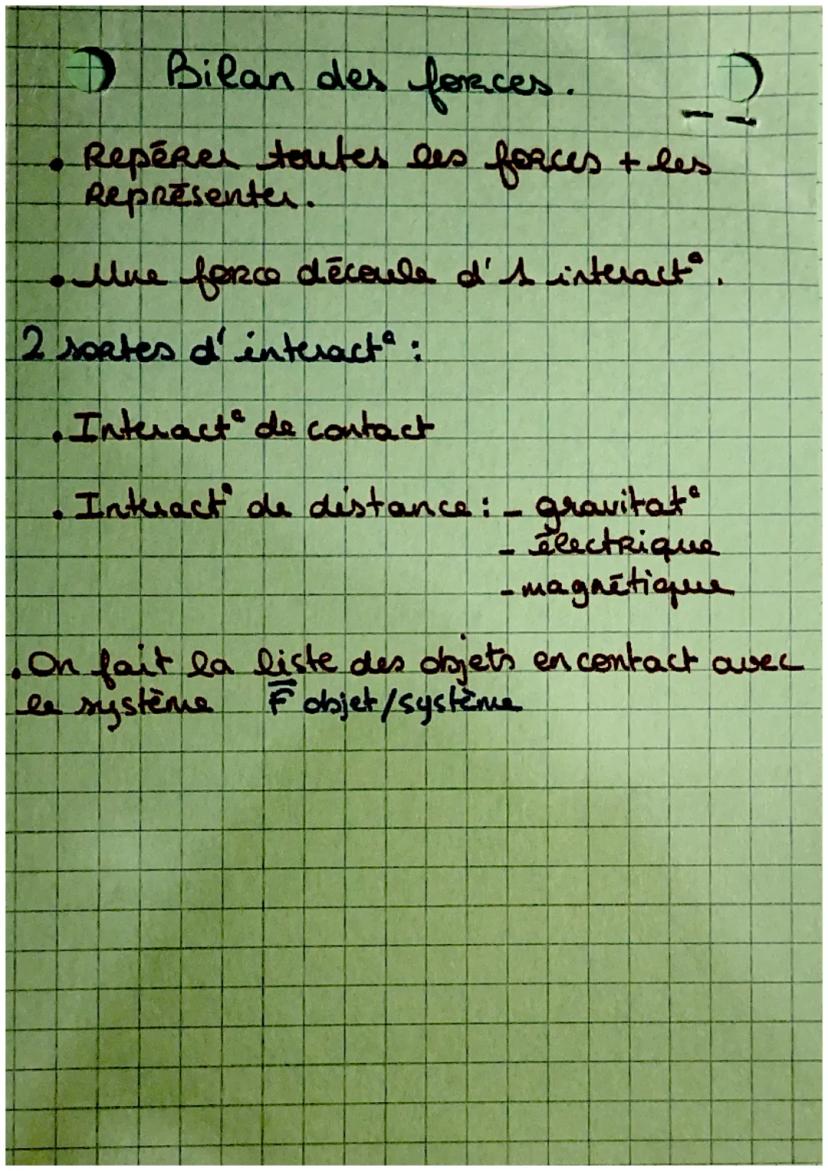 Bilan des forces.
• Repérer toutes les forces + les
Représenter.
• Une force découle d'1 interact°.
2 sortes d'interact° :
• Interact° de contact
• Interact° de distance : - gravitat°
- électrique
- magnétique
• On fait la liste des objets en contact avec
le système F̅ objet/système